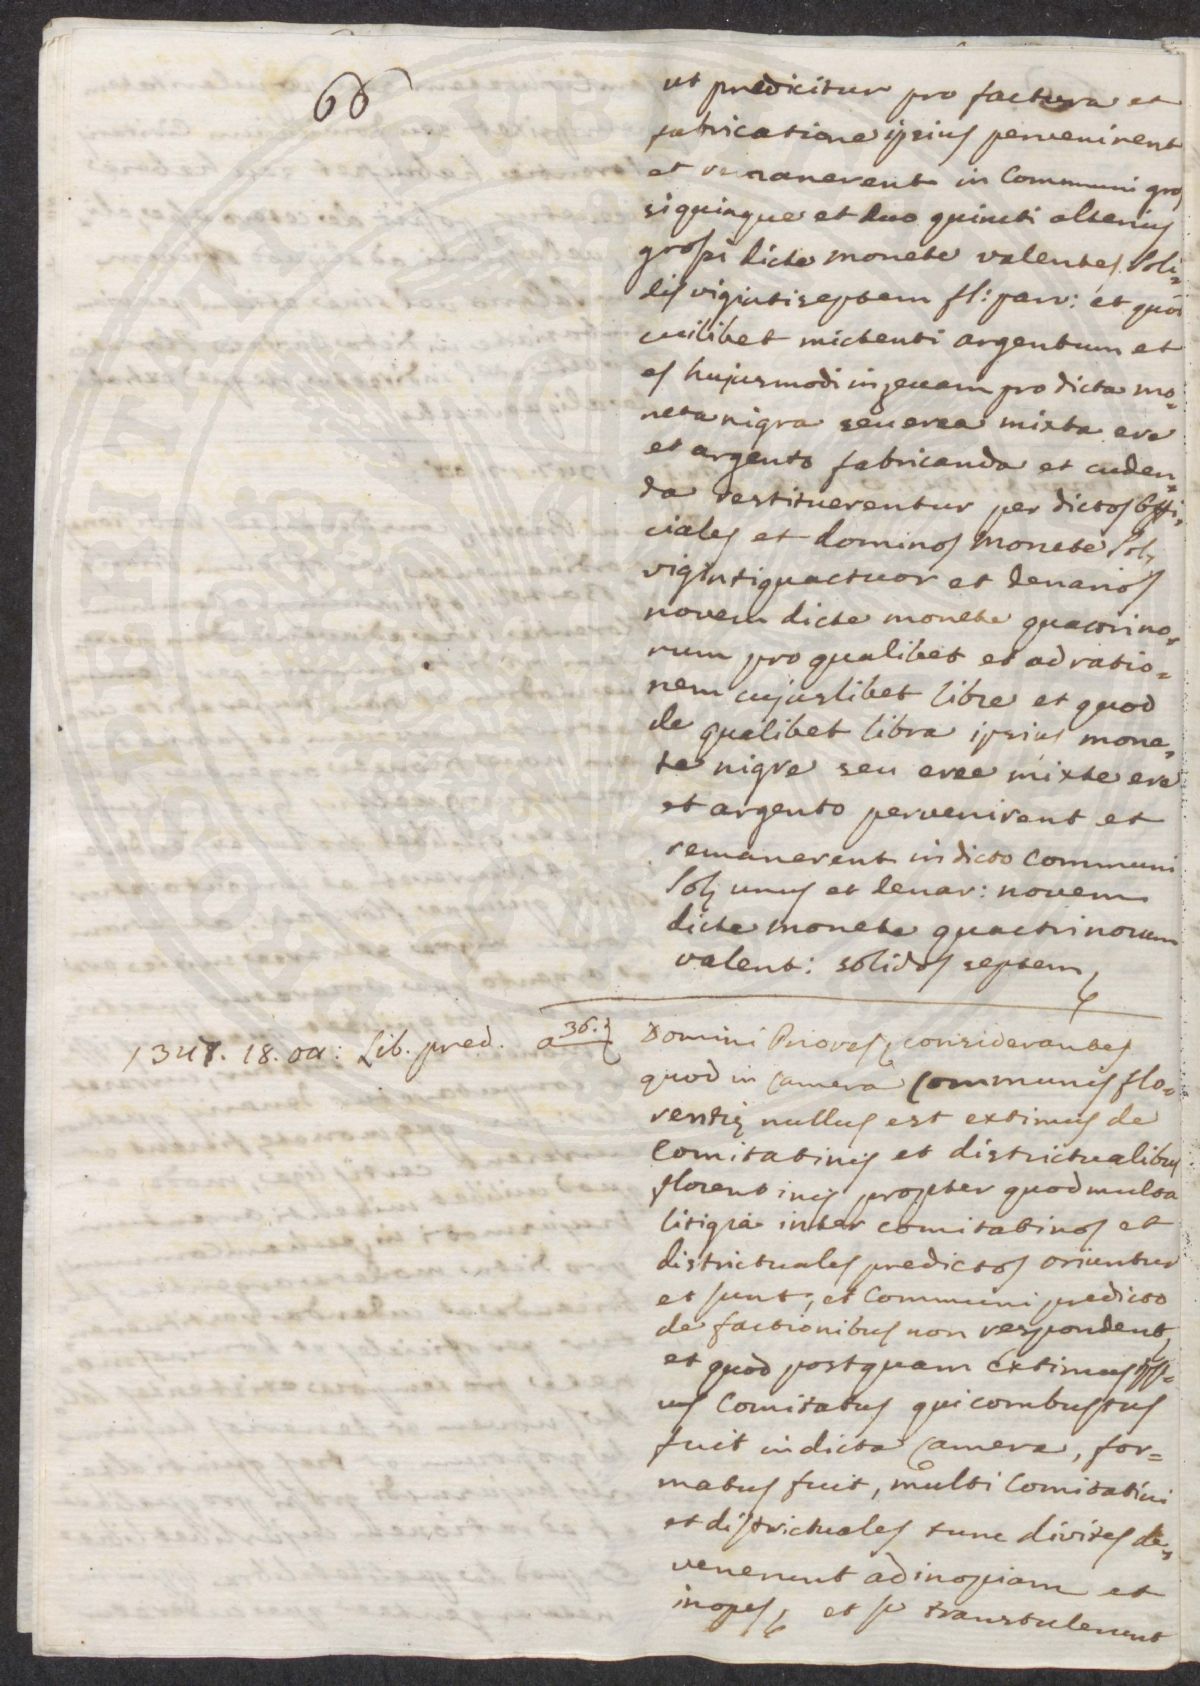 66
ut predicitur pro factura et
fabricatione ipsius pervenirent
et remanerent in Communi gros
si quinque et duo quinti alterius
grossi dicte monete valentes Soli=
dis vigintiseptem fl: parv: et quod
cuilibet mictenti argentum et
es hujusmodi in zeccam pro dicta mo=
neta nigra seu erea mixta ere
et argento fabricanda et cuden=
da restituerentur per dictos Offi=
ciales et dominos Monete Sol:
vigintiquactuor et denarios
novem dicte monete quactrino=
rum pro qualibet et ad ratio=
nem cujuslibet libre et quod
de qualibet libra ipsius mone=
te nigre seu eree mixte ere
et argento pervenirent et
remanerent in dicto Communi
Sol: unus et denar: novem
dicte monete quactrinorum
valent: solidos septem
1347. 18. Lib. pred. a 36.
Domini Priores, considerantes
quod in Camera Communis Flo=
rentię nullus est extimus de
Comitatinis et districtualibus
florentinis propter quod multa
litigia inter comitatinos et
districtuales predictos oriuntur
et sunt, et Communi predicto
de factionibus non respondent,
et quod postquam extimus ipsi=
us Comitatus qui combustus
fuit in dicta Camera, for=
matus fuit, multi Comitatini
et districtuales tunc divites de=
venerunt ad inopiam et
inopes, et se transtulerunt